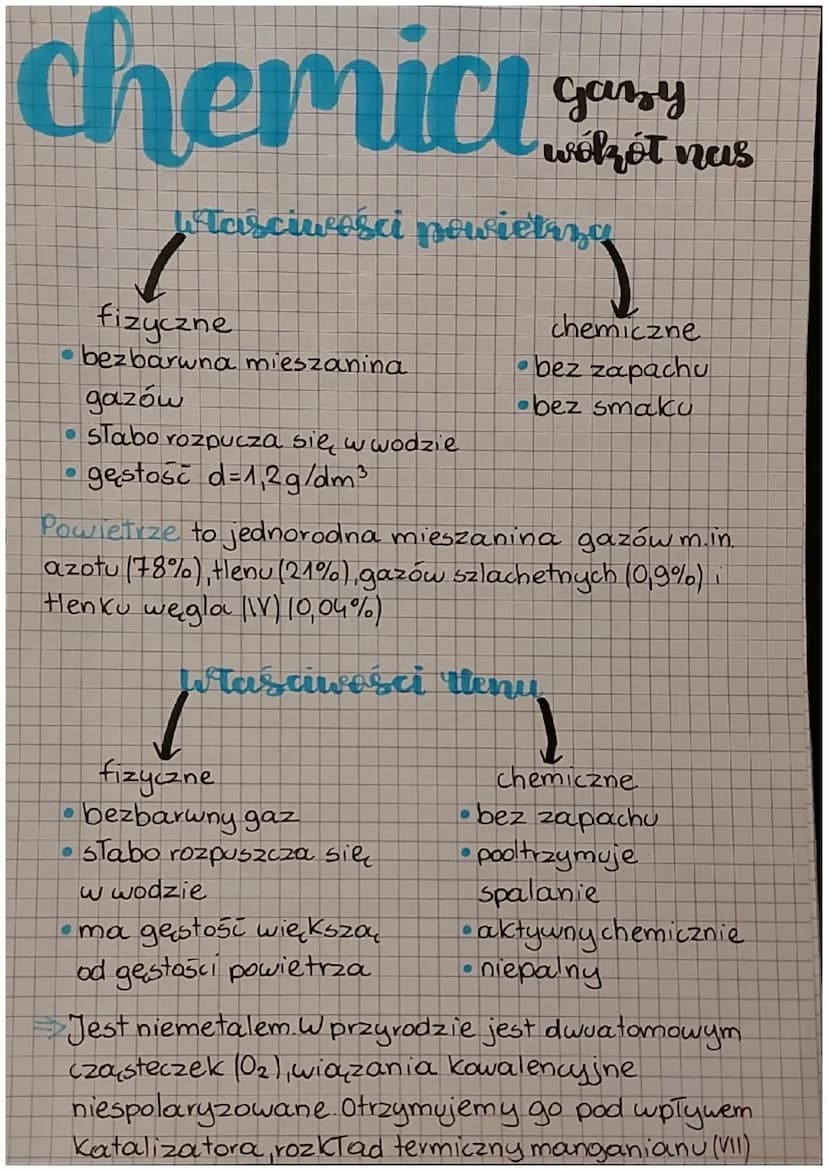 chemia
gazy
wókół nas
właściwości powietrza
fizyczne
• bezbarwna mieszanina
gazów
• słabo rozpucza się w wodzie
• gęstość d=1,2g/dm³
chemiczne
• bez zapachu
• bez smaku
Powietrze to jednorodna mieszanina gazów m.in.
azotu (78%), tlenu (21%), gazów szlachetnych (0,9%) i
tlenku węgla (IV) (0,04%)
właściwości tlenu
fizyczne
• bezbarwny gaz
• słabo rozpuszcza się
w wodzie
• ma gęstość większą
od gęstości powietrza
chemiczne
• bez zapachu
• podtrzymuje
spalanie
• aktywny chemicznie
• niepalny
⇒ Jest niemetalem. W przyrodzie jest dwuatomowym
cząsteczek (O₂), wiązania kowalencyjne
niespolaryzowane. Otrzymujemy go pod wpływem
katalizatora, rozkład termiczny manganianu (VII)